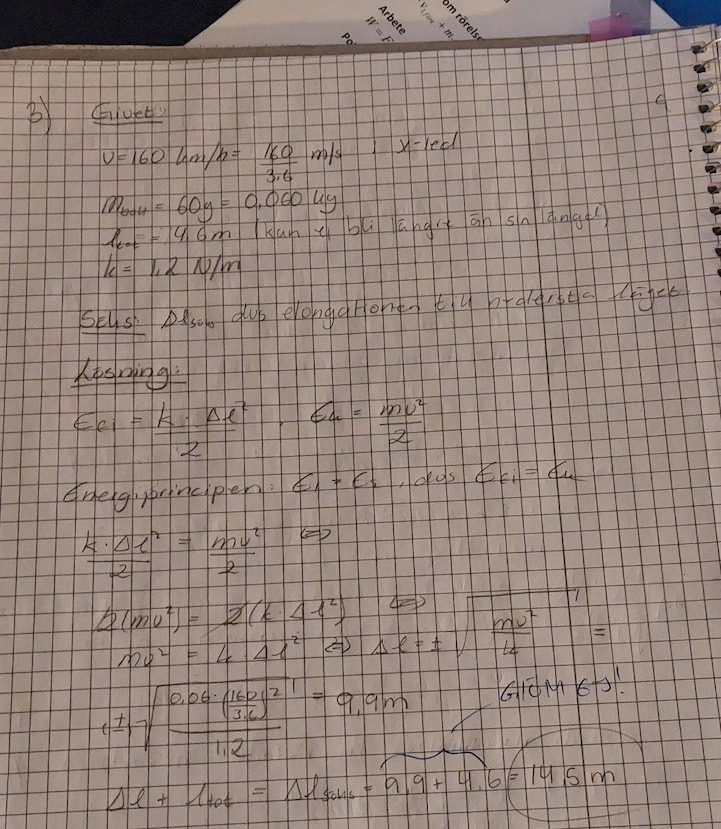 om rörelse
V₁/m + m
Arbete
W = F
Po
3) Givet:
v = 160 km/h = 160/3,6 m/s i x-led
m_boll = 60g = 0,060 kg
l_tot = 4,6m (kan ej bli längre än sin längd)
k = 1,2 N/m
Söks: Δl_söks dvs elongationen till nedersta läget
Lösning:
E_el = k · Δl²/2 , E_k = mv²/2
Energiprincipen: E₁ = E₂, dvs E_el = E_k
k · Δl²/2 = mv²/2 ⇔
2(mv²) = 2(k · Δl²) ⇔
mv² = k · Δl² ⇔ Δl = ± √(mv²/k) =
(±) √(0,06 · (160/3,6)²/1,2) = 9,9m
GLÖM EJ!
Δl + l_tot = Δl_söks = 9,9 + 4,6 = 14,5 m